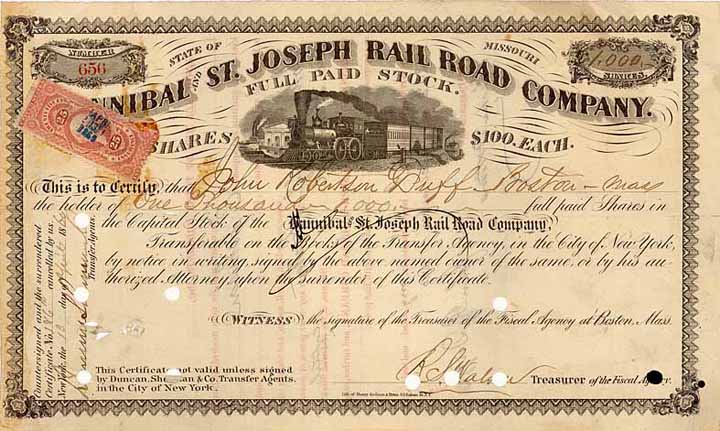 NUMBER
656
STATE OF
MISSOURI
1,000,-
SHARES.
AND ST. JOSEPH RAIL ROAD COMPANY.
FULL PAID STOCK.
25
SHARES
$100. EACH.
This is to Certify, that John Robertson Duff Boston - Mass
the holder of One Thousand 1,000 full paid Shares in
the Capital Stock of the Hannibal and St. Joseph Rail Road Company,
Transferable on the Books of the Transfer Agency, in the City of New York,
by notice in writing, signed by the above named owner of the same, or by his au-
thorized Attorney, upon the surrender of this Certificate.
WITNESS the signature of the Treasurer of the Fiscal Agency at Boston, Mass.
Treasurer of the Fiscal Agency.
This Certificate not valid unless signed
by Duncan, Sherman & Co. Transfer Agents,
in the City of New York.
Countersigned and the surrendered
Certificate No. cancelled by us.
New York, the day of 18
Transfer Agents.